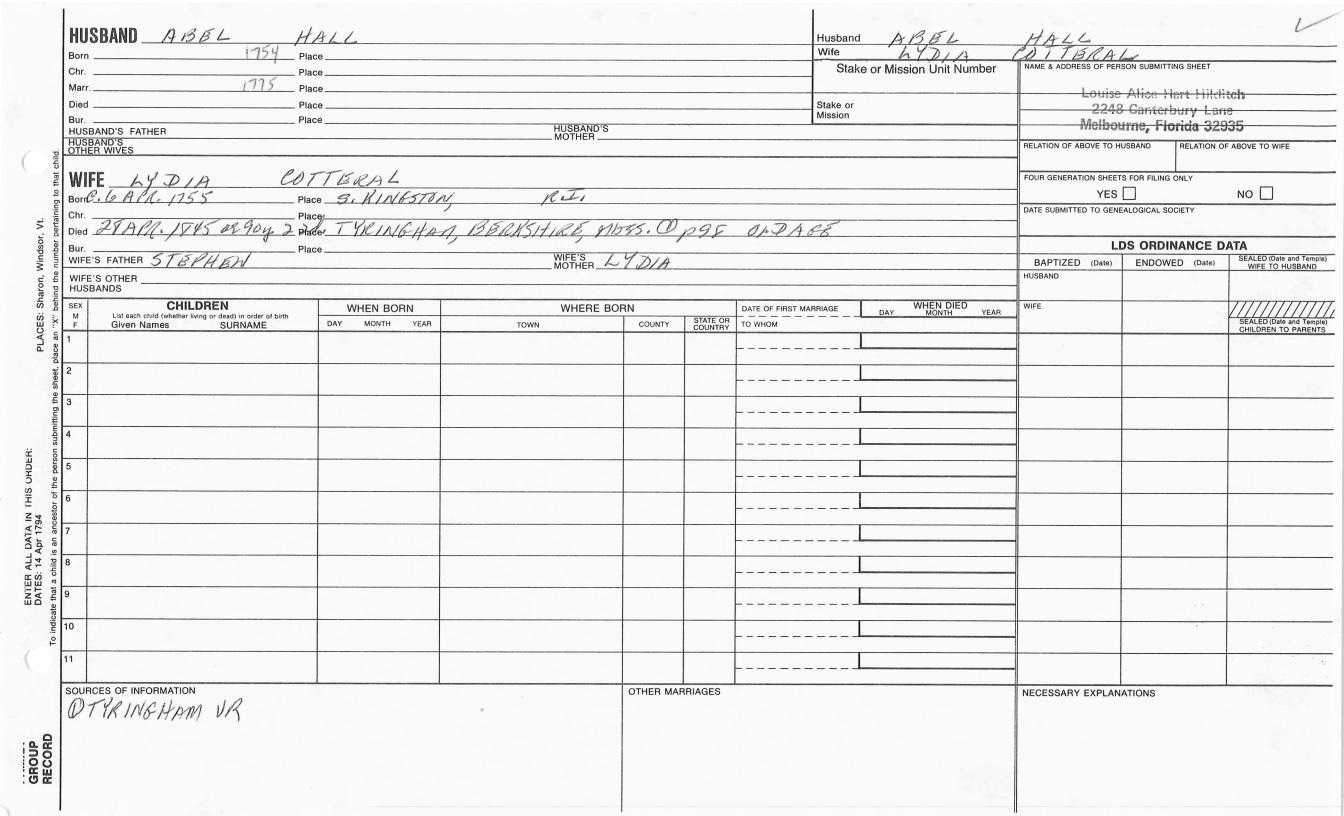 HUSBAND ABEL HALL
Born 1754 Place
Chr. Place
Marr. 1775 Place
Died Place
Bur. Place
HUSBAND'S FATHER HUSBAND'S MOTHER
HUSBAND'S OTHER WIVES
Husband ABEL HALL
Wife LYDIA COTTERAL
Stake or Mission Unit Number
Stake or Mission
NAME & ADDRESS OF PERSON SUBMITTING SHEET
Louise Alice Hart Hilditch
2248 Canterbury Lane
Melbourne, Florida 32935
RELATION OF ABOVE TO HUSBAND RELATION OF ABOVE TO WIFE
FOUR GENERATION SHEETS FOR FILING ONLY
YES NO
DATE SUBMITTED TO GENEALOGICAL SOCIETY
WIFE LYDIA COTTERAL
Born C. 6 APR. 1755 Place S. KINGSTON, R.I.
Chr. Place
Died 28 APR. 1845 ae 90y 22d Place TYRINGHAM, BERKSHIRE, MASS. ① p98 OLD AGE
Bur. Place
WIFE'S FATHER STEPHEN WIFE'S MOTHER LYDIA
WIFE'S OTHER HUSBANDS
LDS ORDINANCE DATA
BAPTIZED (Date) ENDOWED (Date) SEALED (Date and Temple) WIFE TO HUSBAND
HUSBAND
WIFE
SEALED (Date and Temple) CHILDREN TO PARENTS
SEX M F
CHILDREN
List each child (whether living or dead) in order of birth
Given Names SURNAME
WHEN BORN
DAY MONTH YEAR
WHERE BORN
TOWN COUNTY STATE OR COUNTRY
DATE OF FIRST MARRIAGE
TO WHOM
WHEN DIED
DAY MONTH YEAR
1
2
3
4
5
6
7
8
9
10
11
SOURCES OF INFORMATION
① TYRINGHAM VR
OTHER MARRIAGES
NECESSARY EXPLANATIONS
PLACES: Sharon, Windsor, Vt.
ENTER ALL DATA IN THIS ORDER:
DATES: 14 Apr 1794
To indicate that a child is an ancestor of the person submitting the sheet, place an "X" behind the number pertaining to that child.
GROUP
RECORD